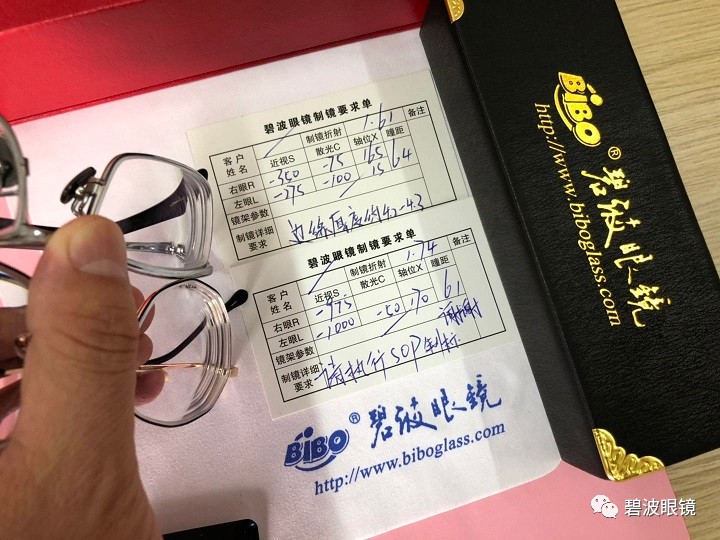 碧波眼镜制镜要求单
客户姓名 制镜折射 1.61 备注
近视S 散光C 轴位X 瞳距
右眼R -350 -75 165 64
左眼L -275 -100 15
镜架参数
制镜详细要求 边缘厚度
碧波眼镜制镜要求单
客户姓名 制镜折射 1.74 备注
近视S 散光C 轴位X 瞳距
右眼R -975 61
左眼L -1000 -50 170
镜架参数
制镜详细要求 请执行SOP制标
BiBO® 碧波眼镜
http://www.biboglass.com
BiBO® 碧波眼镜
http://www.biboglass.com
碧波眼镜